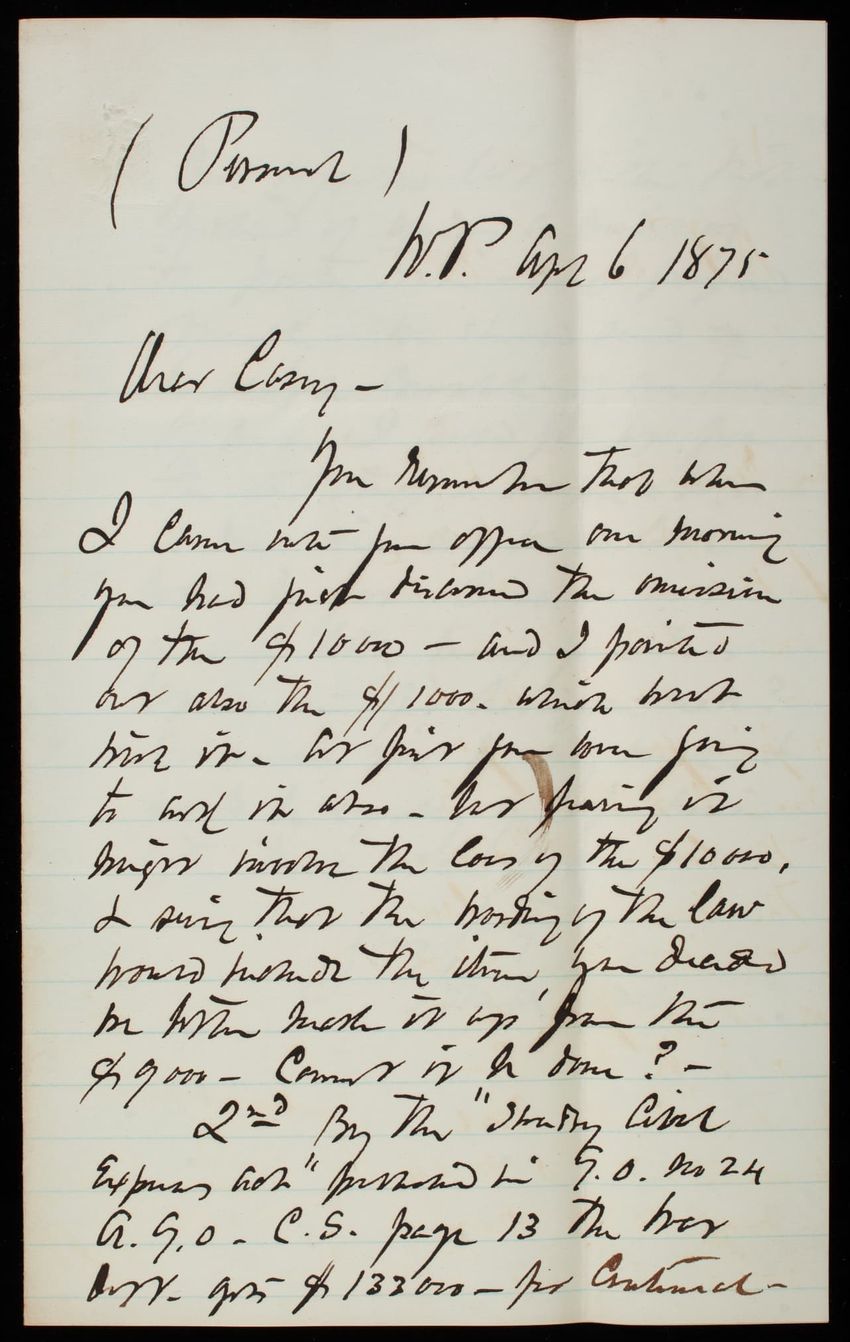 (Personal)
W.P. Apl 6 1875
Dear Casey -
You remember that when
I came into your office one morning
you had just discovered the omission
of the $10000 - and I pointed
out also the $1000. which went
with it - At first you were going
to add it also - but fearing it
might involve the loss of the $10000,
& seeing that the wording of the law
would include the item, you decided
we better make it up from the
$9000 - Cannot it be done? -
2nd By the "Sundry Civil
Expenses Act" published in G.O. No 24
A.G.O. - C.S. page 13 the War
Dept. gets $133000 - for Centennial -